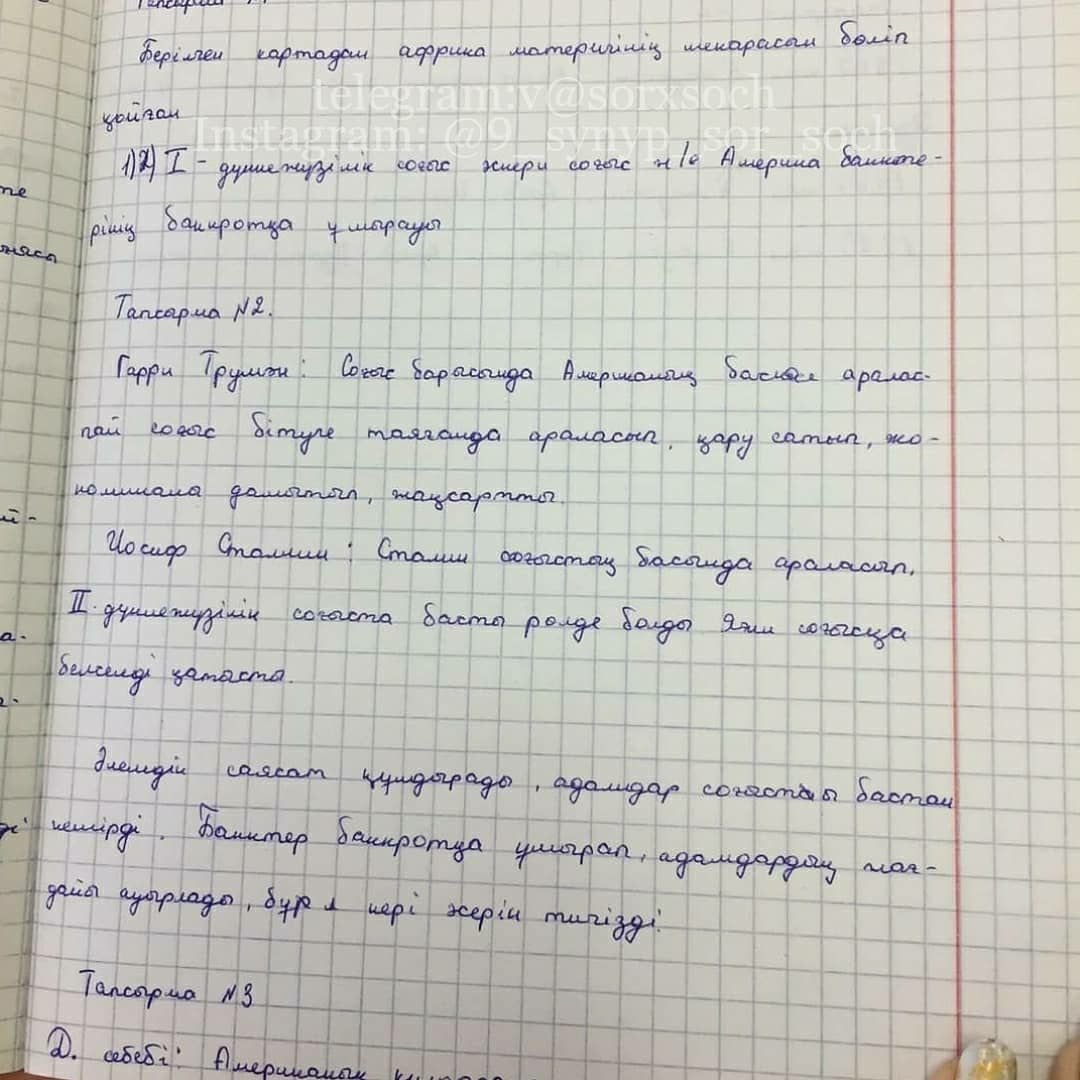 Берілген картадан африка материгінің шекарасын бөліп
қойған
telegram:v@sorxsoch
Instagram: @9_synyp_sor_soch
1) 2) I - дүниежүзілік соғыс әсері соғыс н/е Америка банкте-
рінің банкротқа ұшырауы
Тапсарма №2.
Гарри Трумэн: Соғыс барасында Американың басшысы аралас-
пай соғыс бітуге таяғанда араласып, қару сатып, жо-
дамытып, жақсартты.
Иосиф Сталин: Сталин соғыстың басында араласып,
II-дүниежүзілік соғыста басты рөлде болды Яғни соғысқа
белсенді қатысты.
Әлемдік саясат құлдырады, адамдар соғысты бастан
кешірді. Банктер банкротқа ұшырап, адамдардың жағ-
дайы ауырлады, бұл кері әсерін тигізді.
Тапсырма №3
Д. себебі: Американың